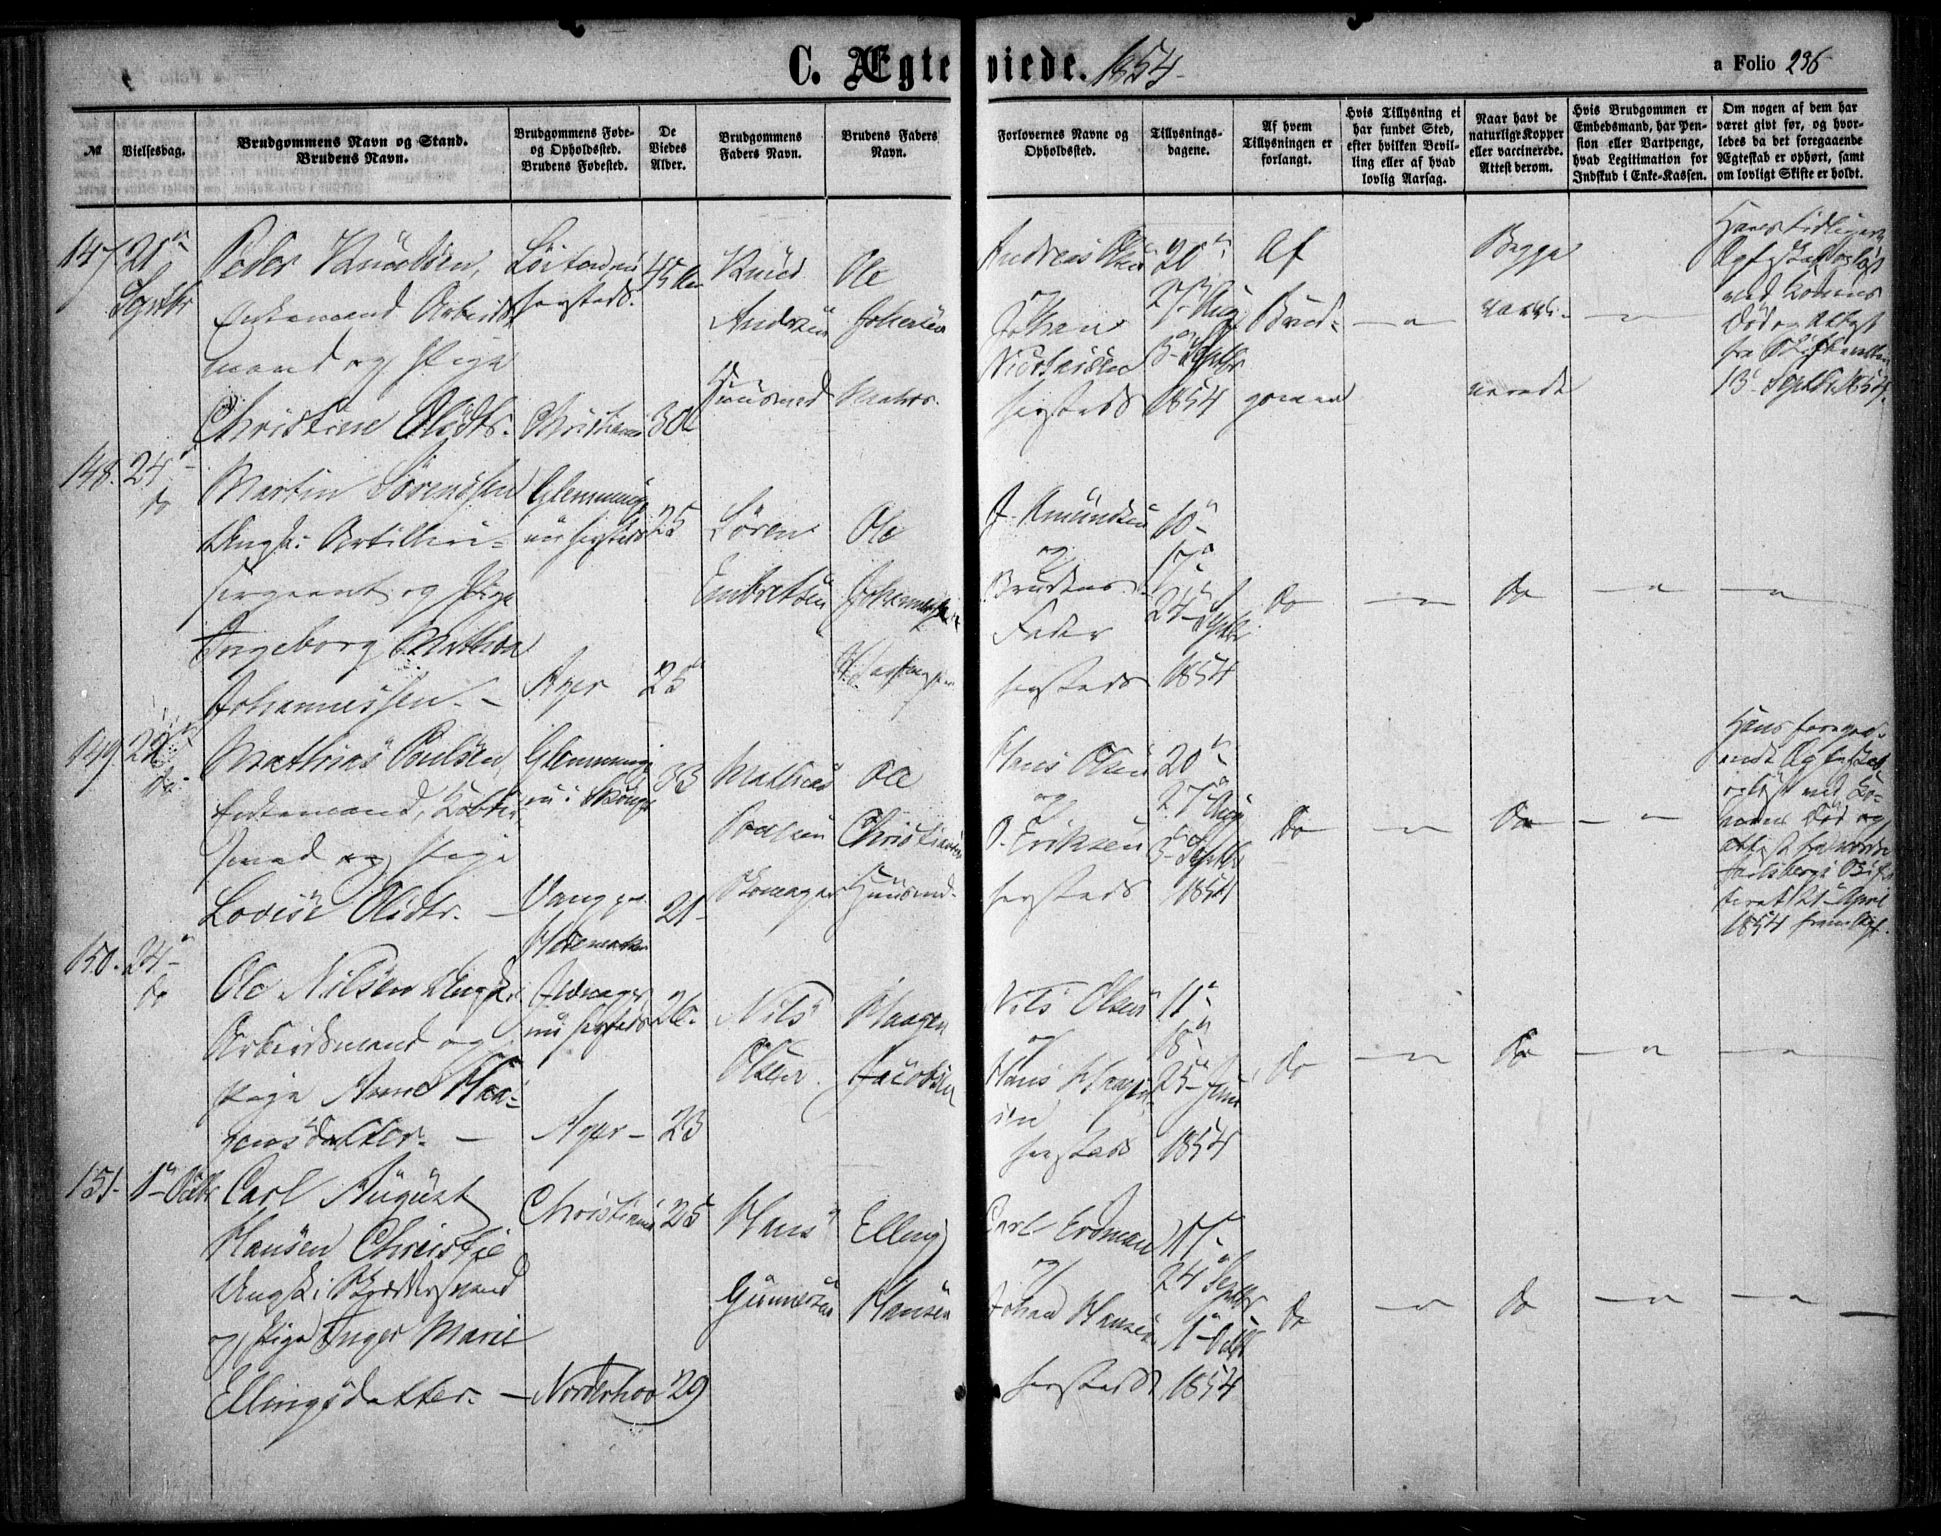 C. Ægteviede. 1854
a Folio 236
№
Vielsesdag.
Brudgommens Navn og Stand.
Brudens Navn.
Brudgommens Føde-
og Opholdssted.
Brudens Fødested.
De
Viedes
Alder.
Brudgommens
Faders Navn.
Brudens Faders
Navn.
Forlovernes Navne og
Opholdssted.
Tillysnings-
dagene.
Af hvem
Tillysningen er
forlangt.
Hvis Tillysning ei
har fundet Sted,
efter hvilken Bevil-
ling eller af hvad
lovlig Aarsag.
Naar havt de
naturlige Kopper
eller vaccinerede.
Attest derom.
Hvis Brudgommen er
Embedsmand, har Pen-
sion eller Vartpenge,
hvad Legitimation for
Indskud i Enke-Kassen.
Om nogen af dem har
været givt før, og hvor-
ledes da det foregaaende
Ægteskab er ophørt, samt
om lovligt Skifte er holdt.
147
21
Septbr
Peder Knudsen,
Enkemand Arbeids
mand og Pige
Christine Olsdtr.
Christiania
45
30
Knud
Andersen
Huusmd
Ole
Johnsen
Andreas Olsen
og
Johan
Nicolaisen
hersteds
20
27 Aug
3 Septbr
1854
Af
Brud-
gommen
Begge
vacci-
nerede
Hans tidligere
Ægteskab
ved Konens
Død og Attest
fra Skifteretten
13 Septbr 1854.
148.
24
do
Martin Sørenssen
Ungk: Artilleri-
sergeant og Pige
Ingeborg Mathea
Johannessen. -
Glemminge
nu hersteds
Ager
25
25
Søren
Embretsen
Ole
Johannessen
J. Amundsen
og
Brudens
Fader
hersteds
10
17
24 Septbr
1854
do
do
149
22
do
Mathias Poulsen
Enkemand,
svend og Pige
Lovise Olsdtr. -
Glemminge
Vang p.
Hedemarken
33
21
Mathias
Poulsen
Skomager
Ole
Christiansen
Huusmd.
Hans Olsen
og
O. Eriksen
hersteds
20
27 Aug
3 Septbr
1854
do
do
Hans foregaa-
ende Ægteskab
opløst ved Ko-
nens Død og
attest
Jarlsbergs
21 April
1854 fremlagt.
150.
24
do
Ole Nilsen Ungk
Arbeidsmand og
Pige Anne Haa-
gensdatter. -
nu hersteds
Ager -
26.
23
Nils
Olsen
Haagen
Jacobsen
Nils Olsen
og
Hans Haagen-
sen
hersteds
11
18
25 Juni
1854
do
do
151.
1 Octbr
Carl August
Hansen Christie
Ungk: Skræddersvend
og Pige Inger Marie
Ellingsdatter. -
Christiania
Norderhov
25
29
Hans
Gunnersen
Elling
Hansen
Carl Erdman
og
Johan Hansen
hersteds
17
24 Septbr
1 Octbr
1854
do
do